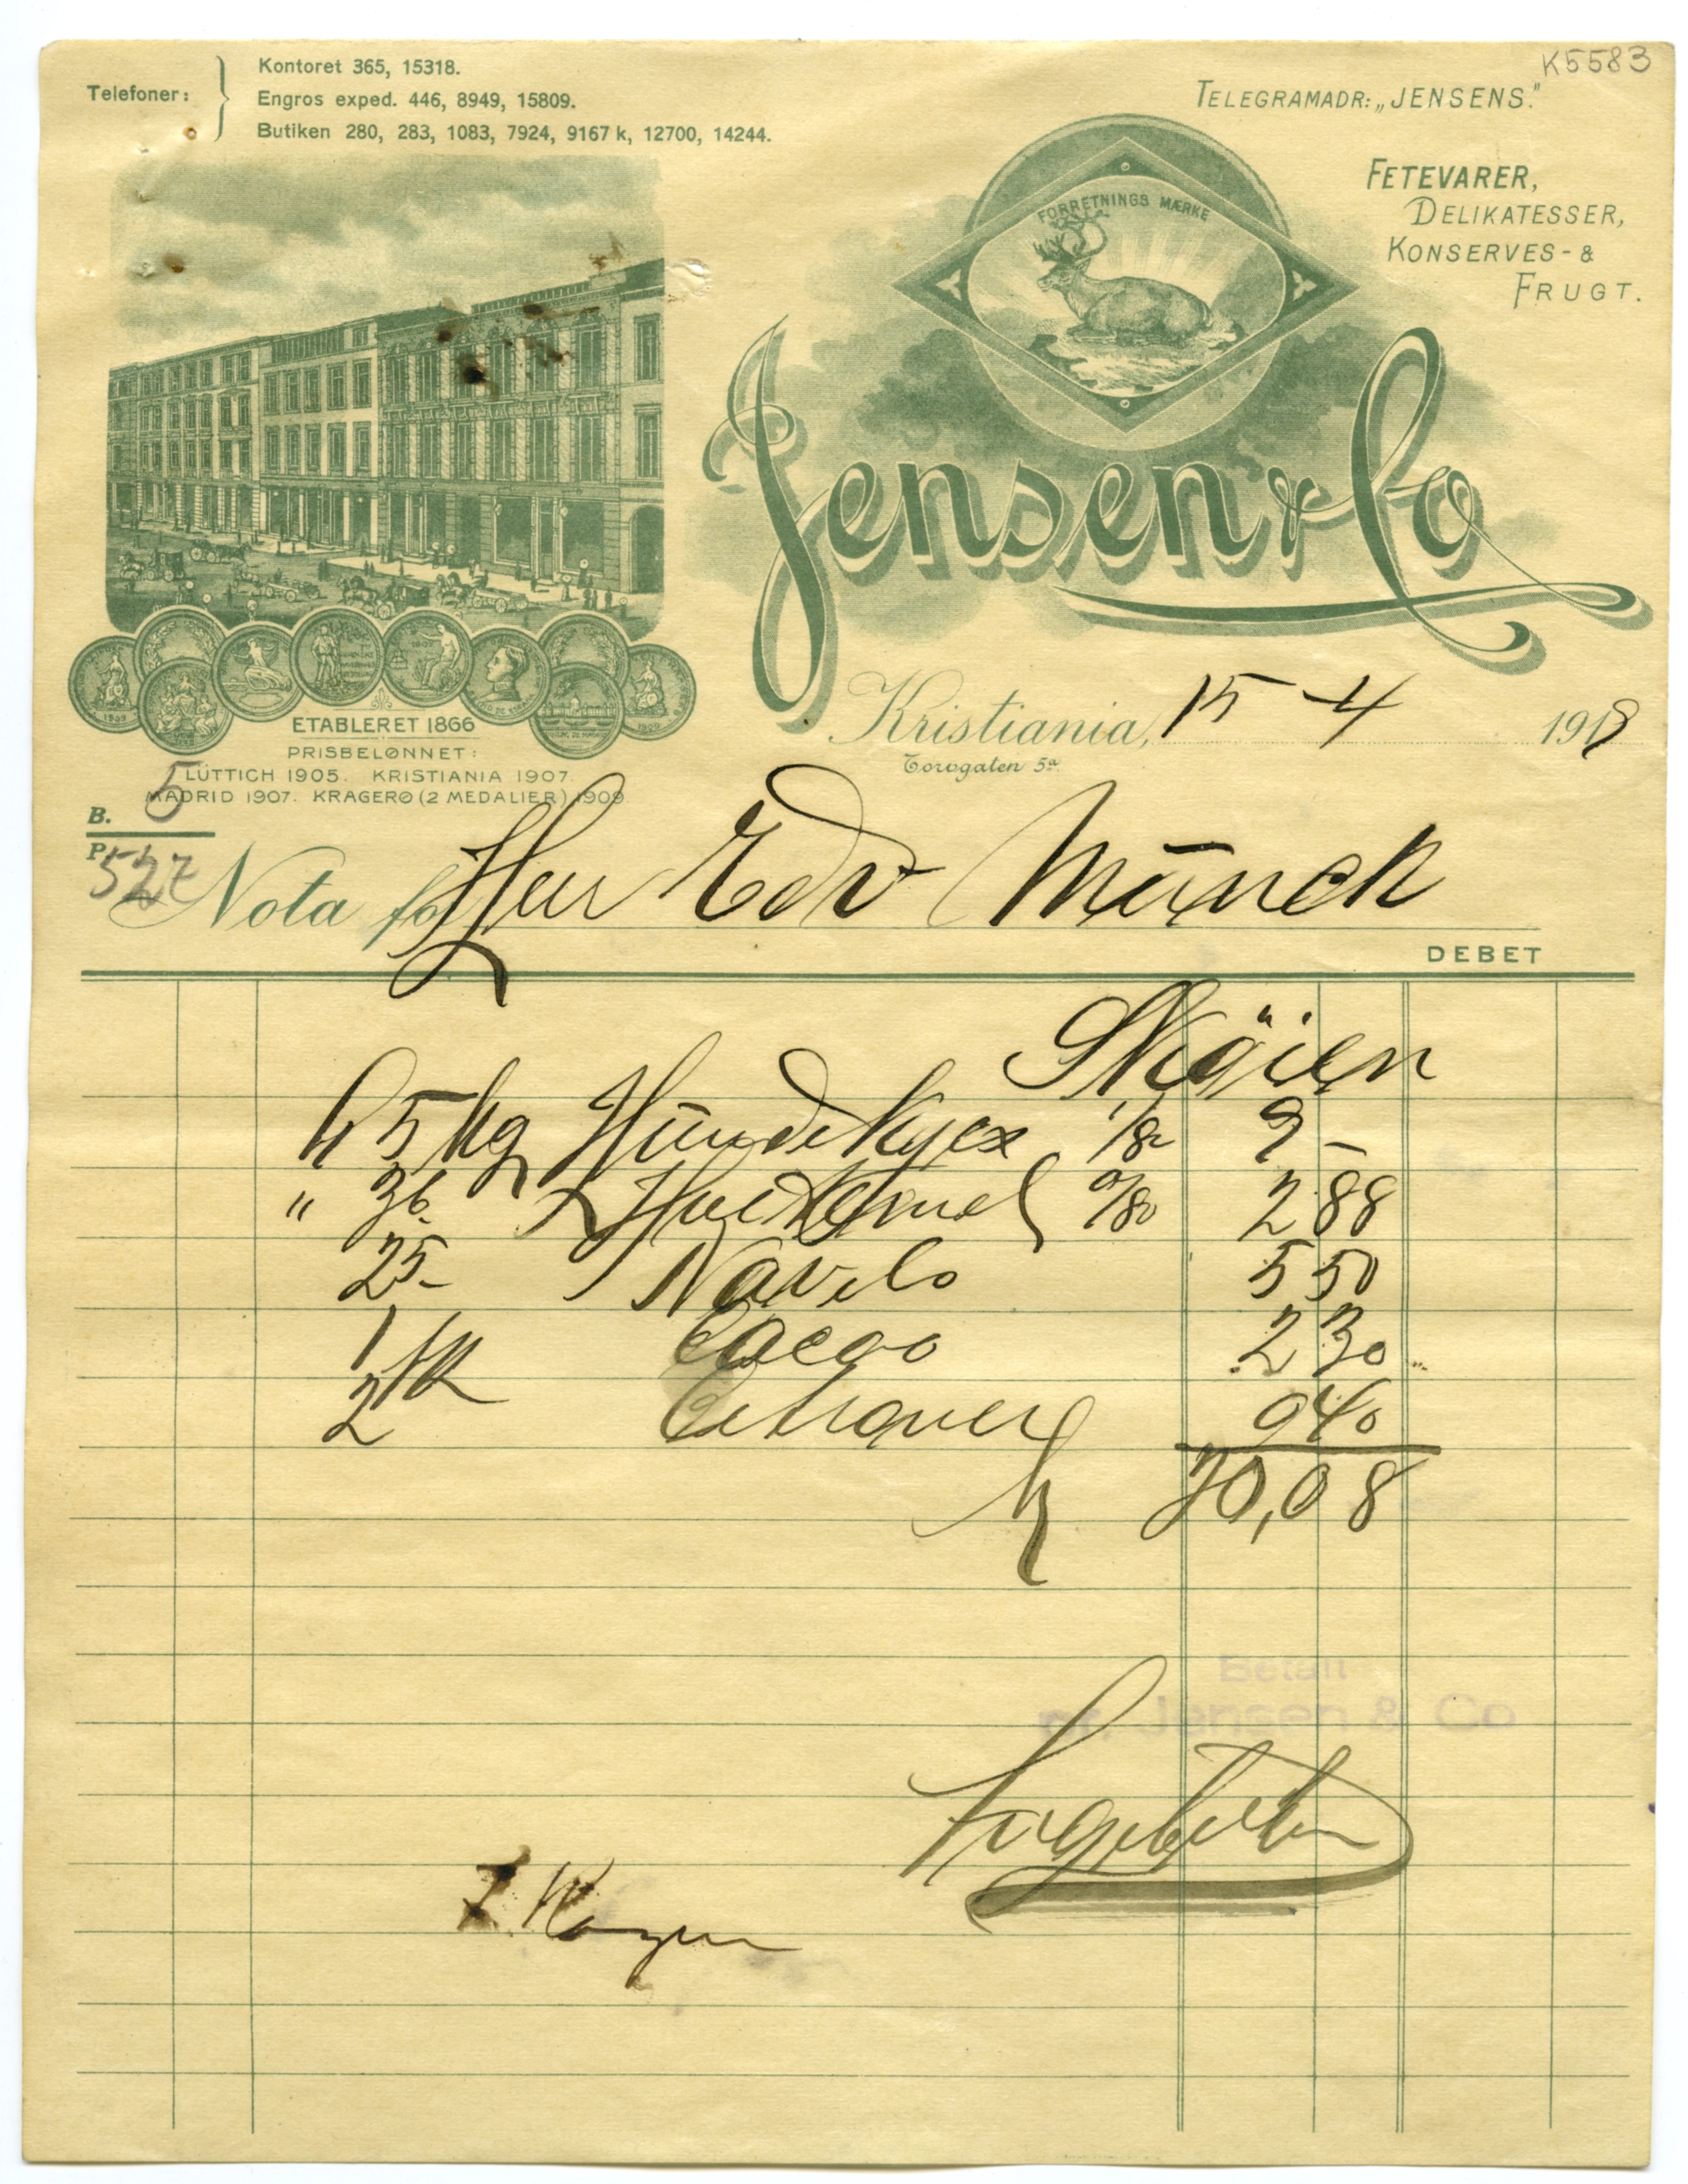 K5583
Telefoner:
Kontoret 365, 15318.
Engros exped. 446, 8949, 15809.
Butiken 280, 283, 1083, 7924, 9167 k, 12700, 14244.
TELEGRAMADR: „JENSENS.”
FETEVARER,
DELIKATESSER,
KONSERVES- &
FRUGT.
FORRETNINGS MÆRKE
Jensen & Co
ETABLERET 1866
PRISBELØNNET:
LÜTTICH 1905. KRISTIANIA 1907.
MADRID 1907. KRAGERØ (2 MEDALIER) 1909
Kristiania, 15-4 1918
Torvgaten 5a
B. 5
P. 527
Nota for Herr Edv Munch
DEBET
Sköien
5 kg Hundekjex 1/80 9 -
" 36 0/80 2 88
25 Navels 5 50
1 Cacao 2 30
2 stk Citroner 0 40
20,08
Betalt
pr. Jensen & Co